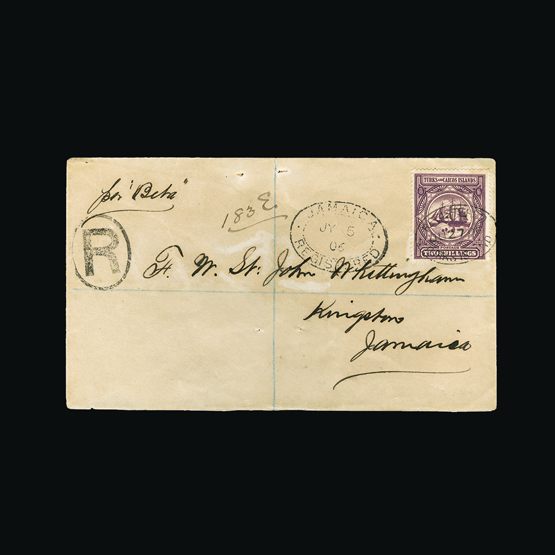 per "Beta"
183 E
TURKS AND CAICOS ISLANDS
TWO SHILLINGS
JAMAICA
JY 5
06
REGISTERED
R
F. W. St. John Whittingham
Kingston
Jamaica